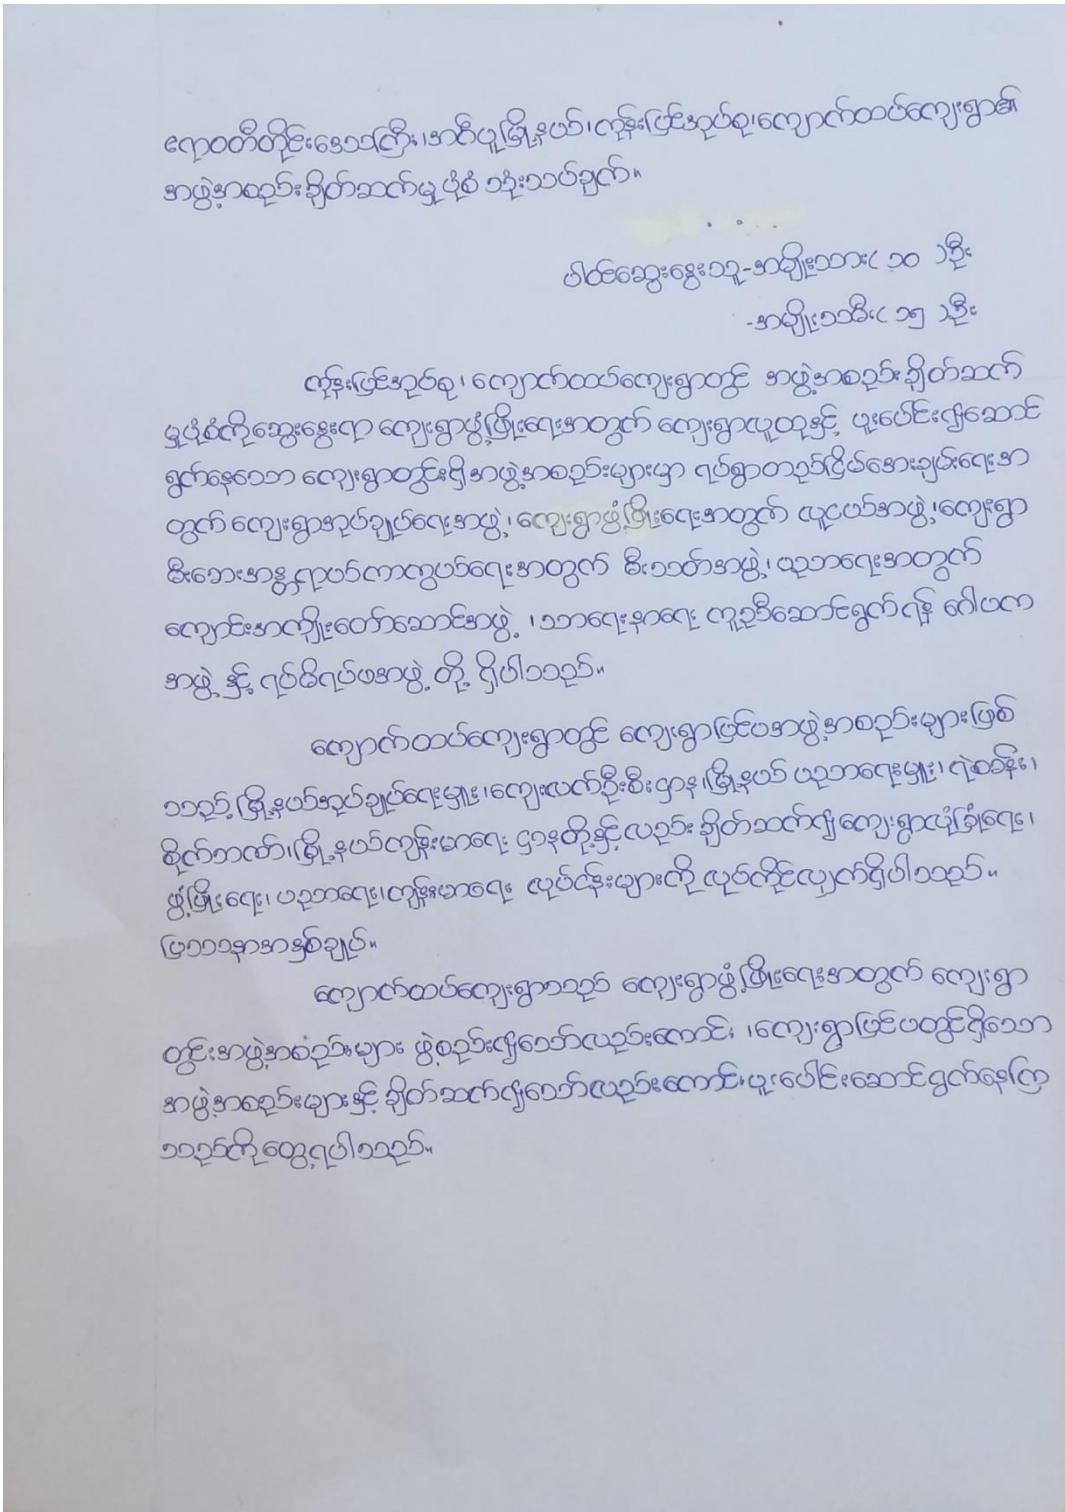 ဧရာဝတီတိုင်းဒေသကြီး၊အင်္ဂပူမြို့နယ်၊ကုန်းပြင်အုပ်စု၊ကျောက်ထပ်ကျေးရွာ၏
အဖွဲ့အစည်းချိတ်ဆက်မှုပုံစံ သုံးသပ်ချက်။
ပါဝင်ဆွေးနွေးသူ-အမျိုးသား( ၁၀ )ဦး
-အမျိုးသမီး( ၁၅ )ဦး
ကုန်းပြင်အုပ်စု၊ ကျောက်ထပ်ကျေးရွာတွင် အဖွဲ့အစည်းချိတ်ဆက်
မှုပုံစံကိုဆွေးနွေးရာ ကျေးရွာဖွံ့ဖြိုးရေးအတွက် ကျေးရွာလူထုနှင့် ပူးပေါင်း၍ဆောင်
ရွက်နေသော ကျေးရွာတွင်းရှိအဖွဲ့အစည်းများမှာ ရပ်ရွာတည်ငြိမ်အေးချမ်းရေးအ
တွက် ကျေးရွာအုပ်ချုပ်ရေးအဖွဲ့၊ ကျေးရွာဖွံ့ဖြိုးရေးအတွက် လူငယ်အဖွဲ့၊ကျေးရွာ
မီးဘေးအန္တရာယ်ကာကွယ်ရေးအတွက် မီးသတ်အဖွဲ့၊ ပညာရေးအတွက်
ကျောင်းအကျိုးတော်ဆောင်အဖွဲ့ ၊သာရေးနာရေး ကူညီဆောင်ရွက်ရန် ဂေါပက
အဖွဲ့ နှင့် ရပ်မိရပ်ဖအဖွဲ့ တို့ ရှိပါသည်။
ကျောက်ထပ်ကျေးရွာတွင် ကျေးရွာပြင်ပအဖွဲ့အစည်းများဖြစ်
သည့် မြို့နယ်အုပ်ချုပ်ရေးမှူး၊ကျေးလက်ဦးစီးဌာန၊မြို့နယ် ပညာရေးမှူး၊ ရဲစခန်း၊
စိုက်ဘဏ်၊မြို့နယ်ကျန်းမာရေး ဌာနတို့နှင့်လည်း ချိတ်ဆက်၍ ကျေးရွာလုံခြုံရေး၊
ဖွံ့ဖြိုးရေး၊ ပညာရေး၊ကျန်းမာရေး လုပ်ငန်းများကို လုပ်ကိုင်လျှက်ရှိပါသည်။
ပြဿနာအနှစ်ချုပ်။
ကျောက်ထပ်ကျေးရွာသည် ကျေးရွာဖွံ့ဖြိုးရေးအတွက် ကျေးရွာ
တွင်းအဖွဲ့အစည်းများ ဖွဲ့စည်း၍သော်လည်းကောင်း ၊ကျေးရွာပြင်ပတွင်ရှိသော
အဖွဲ့အစည်းများနှင့် ချိတ်ဆက်၍သော်လည်းကောင်းပူးပေါင်းဆောင်ရွက်နေကြ
သည်ကိုတွေ့ရပါသည်။